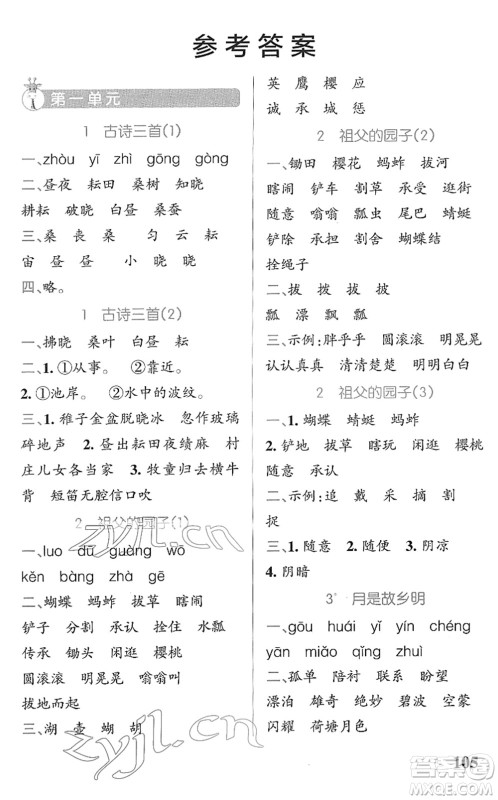 参考答案
第一单元
1 古诗三首(1)
一、zhòu yī zhì gōng gòng
二、昼夜 耘田 桑树 知了
耕耘 破晓 白昼 桑蚕
三、桑 丧 桑 匀 云 耘
宙 昼 昼 小 晓 晓
四、略。
1 古诗三首(2)
一、拂晓 桑叶 昼夜 耘
二、1.①从事。 ②靠近。
2.①池岸。 ②水中的波纹。
三、1.稚子金盆脱晓冰 忽作玻璃
碎地声 2.昼出耘田夜绩麻 村
庄儿女各当家 3.牧童归去横牛
背 短笛无腔信口吹
2 祖父的园子(1)
一、luo dū guàng wō
kěn bàng yīng zha
二、蝴蝶 蚂蚱 拔草 瞎闹
铲子 分割 承认 拴住 水瓢
传承 锄头 闲逛 樱桃
圆滚滚 明晃晃 嗡嗡叫
拔地而起
三、湖 壶 蝴 胡
英 鹰 樱 应
诚 承 城 惩
2 祖父的园子(2)
一、锄田 樱花 蚂蚱 拔河
瞎闹 铲车 割草 承受 逛街
随意 嗡嗡 瓢虫 尾巴 蜻蜓
铲除 承担 割舍 蝴蝶结
拴绳子
二、拔 拨 拨 拔
瓢 漂 飘 瓢
三、示例:胖乎乎 圆滚滚 明晃晃
认认真真 清清楚楚 明明白白
2 祖父的园子(3)
一、1.蝴蝶 蜻蜓 蚂蚱
2.铲地 拔草 瞎玩 闲逛 樱桃
随意 承认
二、示例:追 戴 采 摘 割
捉
三、1.随意 2.随便 3.阴凉
4.阴暗
3* 月是故乡明
一、gōu huái yǐ yín chéng
yān miǎo qǐng zhǐ
二、孤单 陪衬 联系 盼望
漂泊 雄奇 绝妙 碧波 空蒙
闪耀 荷塘月色
105
zyjl.cn
zyjl.cn
答案圈